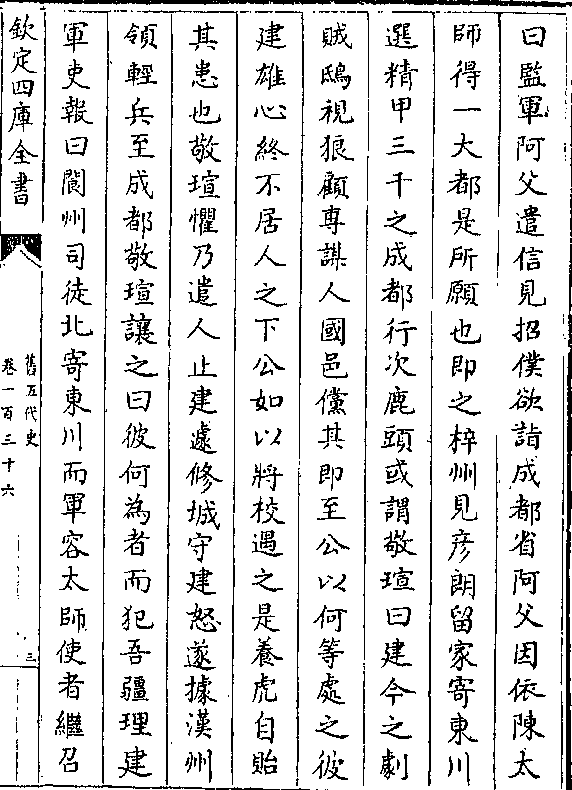 曰監軍阿父遣信見招僕欲詣成都省阿父因依陳太
師得一大都是所願也即之梓州見彥朗留家寄東川
選精甲三千之成都行次鹿頭或謂敬瑄曰建今之劇
賊鴟視狼顧專謀人國邑儻其即至公以何等處之彼
建雄心終不居人之下公如以將校遇之是養虎自貽
其患也敬瑄懼乃遣人止建遽修城守建怒遂據漢州
領輕兵至成都敬瑄讓之曰彼何為者而犯吾疆理建
軍吏報曰閬州司徒北寄東川而軍容太師使者繼召
欽定四庫全書
舊五代史
卷一百三十六
三